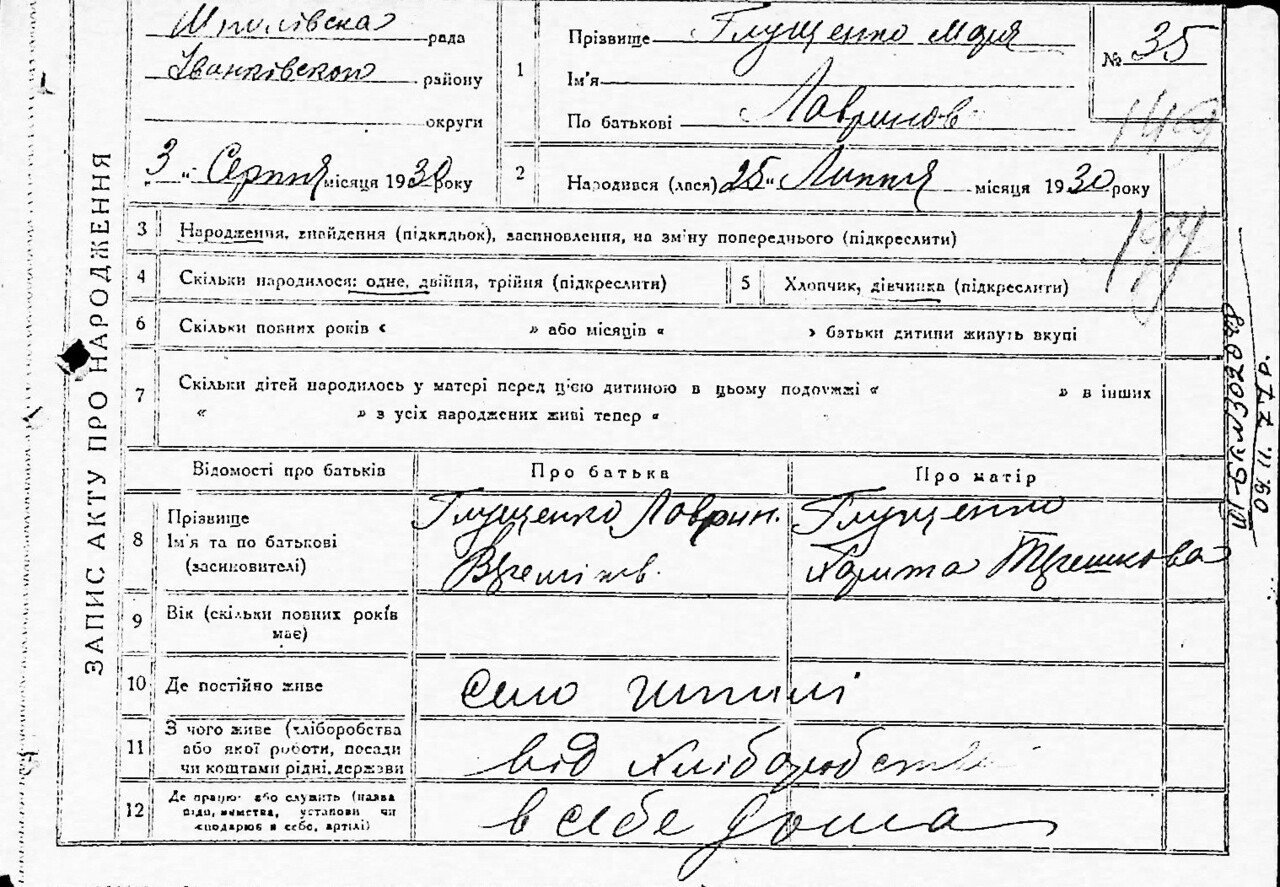 ЗАПИС АКТУ ПРО НАРОДЖЕННЯ
Шпилівска рада
Іванківского району
округи
3 „ Серпня місяця 1930 року
1
Прізвище Глущенко Марія
Ім'я
По батькові Лавринов
№ 35
149
2
Народився (лася) 25 „ Липня місяця 1930 року
3 Народження, знайдення (підкидьок), засиновлення, на зміну попереднього (підкреслити)
4 Скільки народилося: одне, двійня, трійня (підкреслити)
5 Хлопчик, дівчинка (підкреслити)
6 Скільки повних років « » або місяців « » батьки дитини живуть вкупі
7 Скільки дітей народилось у матері перед цією дитиною в цьому подружжі « » в інших
« » з усіх народжених живі тепер «
Відомості про батьків
Про батька
Про матір
8
Прізвище
Ім'я та по батькові
(засиновителі)
Глущенко Лаврин.
Глущенко
Харита
9 Вік (скільки повних років
має)
10 Де постійно живе
село шпилі
11
З чого живе (хліборобства
або якої роботи, посади
чи коштами рідні, держави
від хліборобства
12
Де працює або служить (назва
установи чи
господарює в себе, артілі)
в себе дома
ІІІ-БК №302048
09.11.77 р.